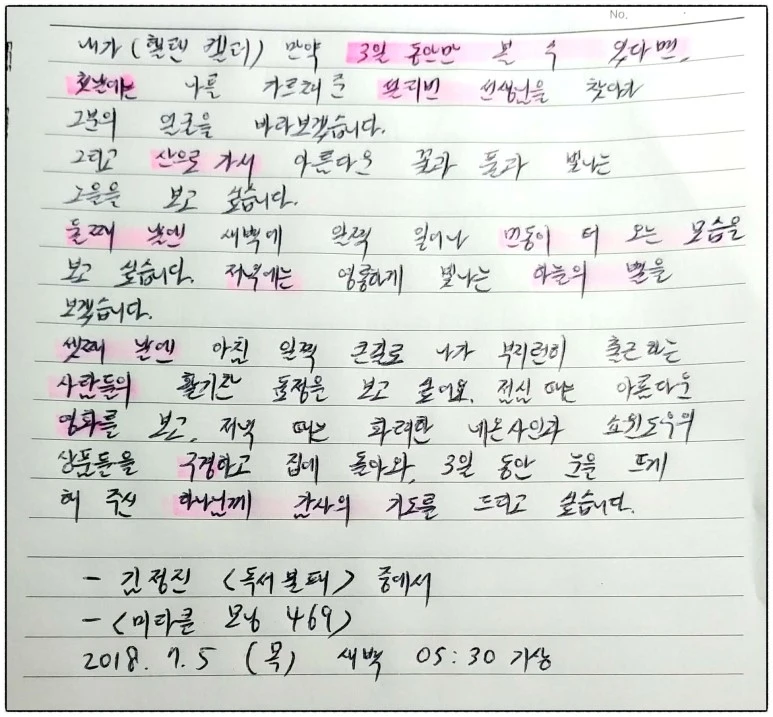 No.
내가 (헬렌 켈러) 만약 3일 동안만 볼 수 있다면,
첫날에는 나를 가르쳐 준 설리번 선생님을 찾아가
그분의 얼굴을 바라보겠습니다.
그리고 산으로 가서 아름다운 꽃과 풀과 빛나는
노을을 보고 싶습니다.
둘째 날엔 새벽에 일찍 일어나 먼동이 터 오는 모습을
보고 싶습니다. 저녁에는 영롱하게 빛나는 하늘의 별을
보겠습니다.
셋째 날엔 아침 일찍 큰길로 나가 부지런히 출근하는
사람들의 활기찬 표정을 보고 싶어요. 점심 때는 아름다운
영화를 보고, 저녁 때는 화려한 네온사인과 쇼윈도우의
상품들을 구경하고 집에 돌아와, 3일 동안 눈을 뜨게
해 주신 하나님께 감사의 기도를 드리고 싶습니다.
- 김정진 <독서불패> 중에서
- <미라클 모닝 469>
2018. 7. 5 (목) 새벽 05:30 기상